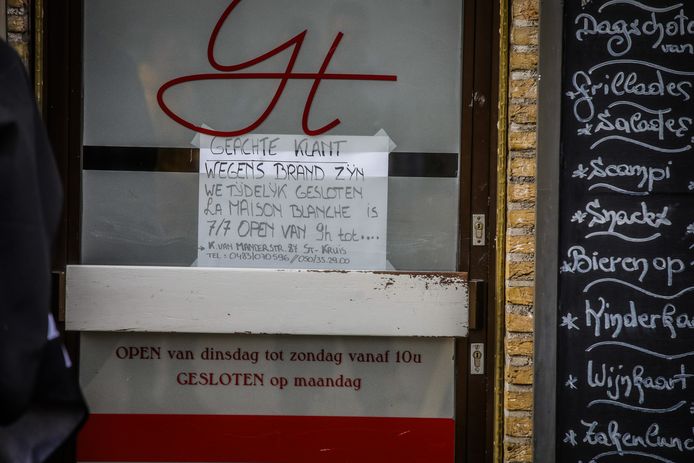 GEACHTE KLANT
WEGENS BRAND ZYN
WE TYDELYK GESLOTEN
LA MAISON BLANCHE is
7/7 OPEN VAN 9h tot....
K. VAN MANDERSTR. 87 ST-KRUIS
TEL: 0483/070596 // 050/35.29.00
OPEN van dinsdag tot zondag vanaf 10u
GESLOTEN op maandag
Dagschote
van
* Grillades
* Salades
* Scampi
* Snacks
* Bieren op
* Kinderka
* Wijnkaart
* Zakenlun